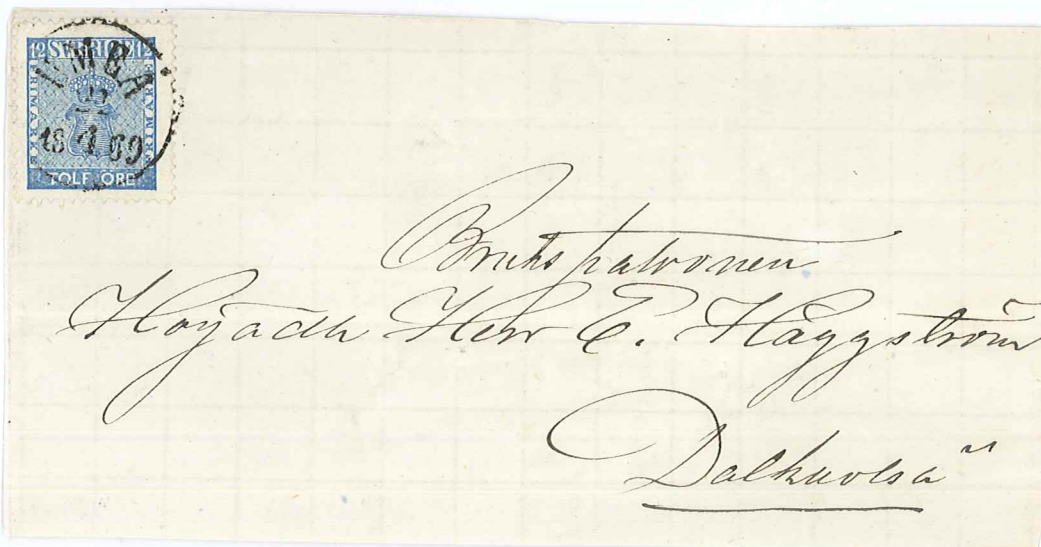 12 SVERIGE 12
FRIMARKE
FRIMARKE
TOLF ÖRE
UMEÅ
22
18 4 69
Brukspatronen
Herr E. Häggström
Dalkarlså